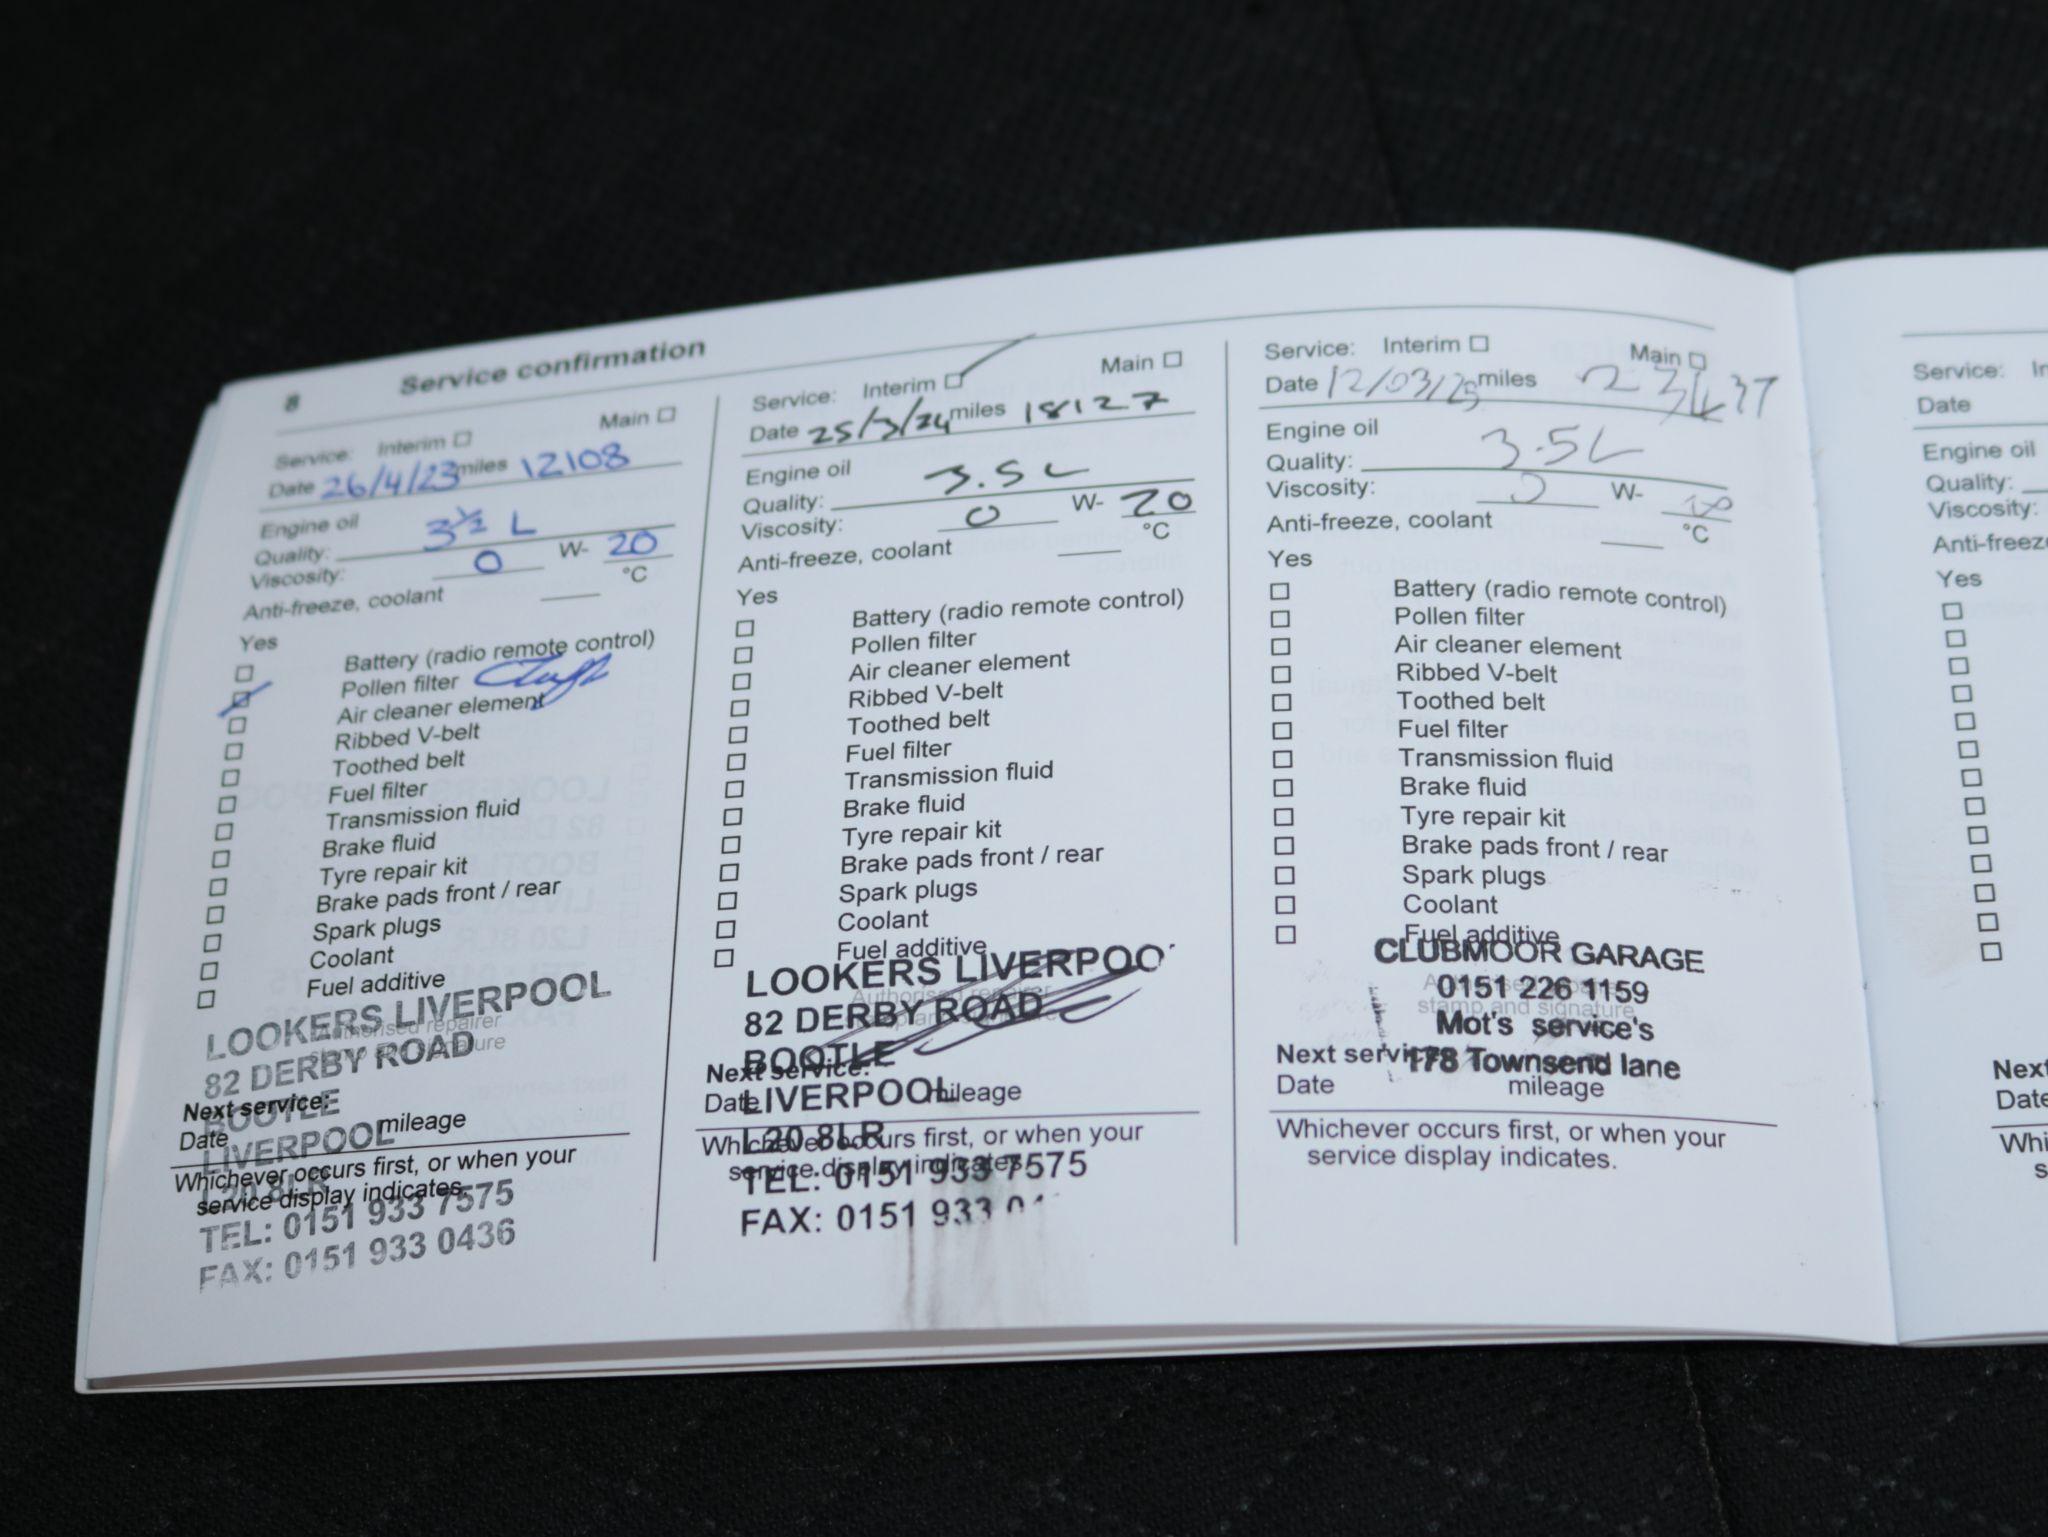 8 Service confirmation
Service: Interim Main
Date 26/4/23 miles 12108
Engine oil
Quality: 3½ L
Viscosity: 0 W- 20
Anti-freeze, coolant °C
Yes
Battery (radio remote control)
Pollen filter
Air cleaner element
Ribbed V-belt
Toothed belt
Fuel filter
Transmission fluid
Brake fluid
Tyre repair kit
Brake pads front / rear
Spark plugs
Coolant
Fuel additive
LOOKERS LIVERPOOL
Authorised repairer
82 DERBY ROAD
stamp and signature
BOOTLE
Next service:
LIVERPOOL
Date mileage
L20 8LR
Whichever occurs first, or when your
service display indicates.
TEL: 0151 933 7575
FAX: 0151 933 0436
Service: Interim Main
Date 25/3/24 miles 18127
Engine oil
Quality: 3.5 L
Viscosity: 0 W- 20
Anti-freeze, coolant °C
Yes
Battery (radio remote control)
Pollen filter
Air cleaner element
Ribbed V-belt
Toothed belt
Fuel filter
Transmission fluid
Brake fluid
Tyre repair kit
Brake pads front / rear
Spark plugs
Coolant
Fuel additive
LOOKERS LIVERPOO
Authorised repairer
82 DERBY ROAD
stamp and signature
BOOTLE
Next service:
LIVERPOOL
Date mileage
L20 8LR
Whichever occurs first, or when your
service display indicates.
TEL: 0151 933 7575
FAX: 0151 933 0
Service: Interim Main
Date 12/03/25 miles
Engine oil
Quality: 3.5L
Viscosity: W-
Anti-freeze, coolant °C
Yes
Battery (radio remote control)
Pollen filter
Air cleaner element
Ribbed V-belt
Toothed belt
Fuel filter
Transmission fluid
Brake fluid
Tyre repair kit
Brake pads front / rear
Spark plugs
Coolant
Fuel additive
CLUBMOOR GARAGE
Authorised repairer
0151 226 1159
stamp and signature
Mot's service's
Next service:
178 Townsend lane
Date mileage
Whichever occurs first, or when your
service display indicates.
Service:
Date
Engine oil
Quality:
Viscosity:
Anti-freeze
Yes
Next
Date